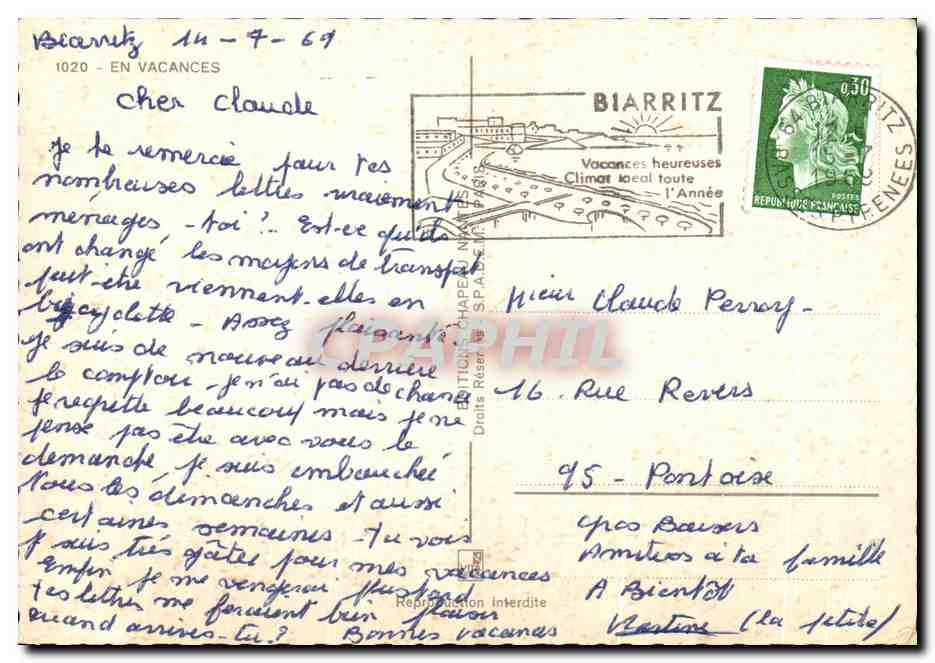 Biarritz 14-7-69
1020 - EN VACANCES
Cher Claude
Je te remercie pour tes
nombreuses lettres vraiment
ménages - toi ? - Est-ce qu'ils
ont changé les moyens de transport
peut-être viennent-elles en
bicyclette - Assez plaisanté.
Je suis de nouveau derrière
le comptoir - je n'ai pas de chance
je regrette beaucoup mais je ne
pense pas être avec vous le
demanche je suis embauchée
tous les demanches et aussi
certaines semaines - tu vois
je suis très gâtée pour mes vacances
Enfin je me vengerai plus tard
Tes lettres me feraient bien plaisir
quand arrives-tu ? Bonnes vacances
EDITIONS CHAPEAU NANTES
Droits Réservés S.P.A.D.E.M. PARIS
Reproduction interdite
BIARRITZ
Vacances heureuses
Climat ideal toute
l'Année
0,30
POSTES
REPUBLIQUE FRANCAISE
64 BIARRITZ
BASSES PYRENEES
CPAPHIL
Claude Perroy -
16 - Rue Revers
95 - Pontoise
Gros Baisers
Amitiés à ta famille
A Bientôt
Martine (la petite)